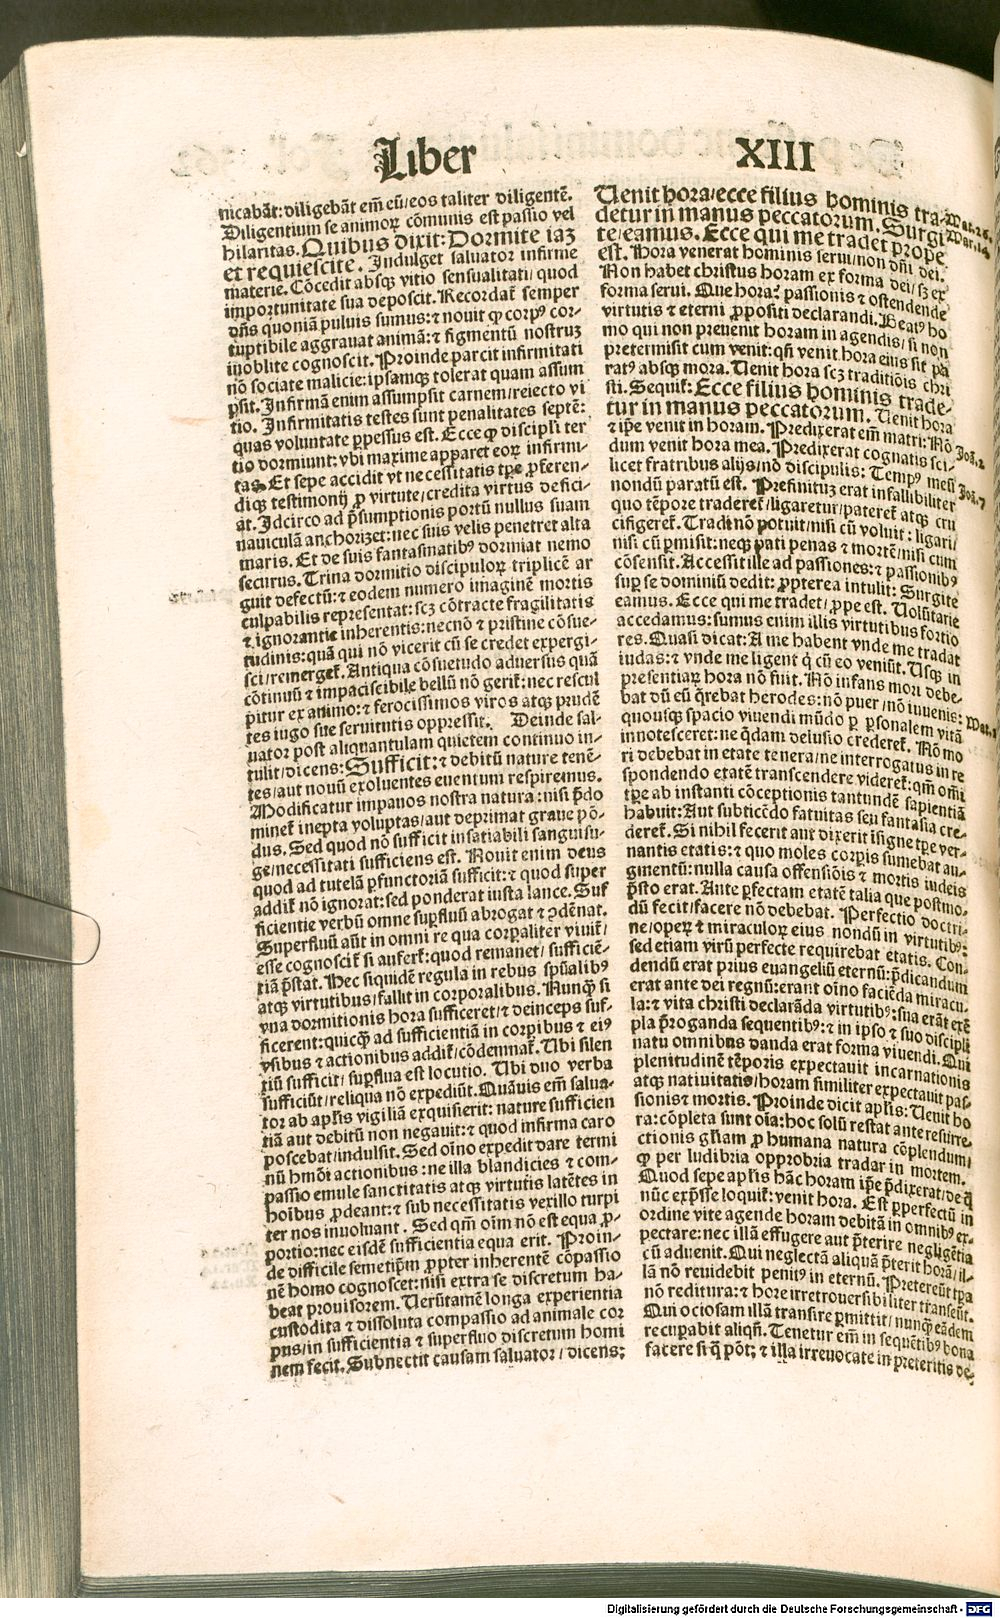 Liber XIII
nicabāt: diligebāt em̄ eū/eos taliter diligentē.
Diligentium se animoꝝ cōmunis est passio vel
hilaritas. Quibus dixit: Dormite iaꝫ
et requiescite. Indulget saluator infirme
materie. Cōcedit absqꝫ vitio sensualitati/quod
importunitate sua deposcit. Recordat̄ semper
dn̄s quoniā puluis sumus: ⁊ nouit ꝙ corpꝰ cor-
ruptibile aggrauat animā: ⁊ figmentū nostruꝫ
inoblite cognoscit. Proinde parcit infirmitati
nō sociate malicie: ipsamqꝫ tolerat quam assum
psit. Infirmā enim assumpsit carnem/reiecto vi
tio. Infirmitatis testes sunt penalitates septē:
quas voluntate ꝑpessus est. Ecce ꝙ discipli ter
tio dormiunt: vbi maxime apparet eoꝝ infirmi-
tas. Et sepe accidit vt necessitatis tꝑe ꝓferen-
diqꝫ testimonij ꝓ virtute/credita virtus defici-
at. Idcirco ad p̄sumptionis portū nullus suam
nauiculā anchorizet: nec suis velis penetret alta
maris. Et de suis fantasmatibꝰ dormiat nemo
securus. Trina dormitio discipuloꝝ triplicē ar
guit defectū: ⁊ eodem numero imaginē mortis
culpabilis representat: scꝫ cōtracte fragilitatis
⁊ ignorantie inherentis: necnō ⁊ pristine cōsue-
tudinis: quā qui nō vicerit cū se credet expergi-
sci/remerget̄. Antiqua cōsuetudo aduersus quā
cōtinuū ⁊ impaciscibile bellū nō gerit̄: nec rescul
pitur ex animo: ⁊ ferocissimos viros atqꝫ prudē
tes iugo sue seruitutis oppressit. Deinde sal-
uator post aliquantulam quietem continuo in-
tulit/dicens: Sufficit: ⁊ debitū nature tenē-
tes/aut nouū exoluentes euentum respiremus.
Modificatur impauos nostra natura: nisi p̄do
minet̄ inepta voluptas/aut deprimat graue pō-
dus. Sed quod nō sufficit insatiabili sanguisu-
ge/necessitati sufficiens est. Nouit enim deus
quod ad tutelā ꝑfunctoriā sufficit: ⁊ quod super
addit̄ nō ignorat: sed ponderat iusta lance. Suf
ficientie verbū omne suꝑfluū abrogat ⁊ ꝯdēnat.
Superfluū aūt in omni re qua corꝑaliter viuit̄/
esse cognoscit̄ si aufert̄: quod remanet/ sufficiē-
tiā p̄stat. Hec siquidē regula in rebus spūalibꝰ
atqꝫ virtutibus/fallit in corporalibus. Nunqꝫ si
vna dormitionis hora sufficeret/⁊ deinceps suf-
ficerent: quicqꝫ ad sufficientiā in corpibus ⁊ eiꝰ
vsibus ⁊ actionibus addit̄/cōdemnat̄. Ubi silen
tiū sufficit/ suꝑflua est locutio. Ubi duo verba
sufficiūt/reliqua nō expediūt. Quāuis em̄ salua-
tor ab apl̄is vigiliā exquisierit: nature sufficien
tiā aut debitū non negauit: ⁊ quod infirma caro
poscebat/indulsit. Sed oīno expedit dare termi
nū hmōi actionibus: ne illa blandicies ⁊ com-
passio emule sanctitatis atqꝫ virtutis latētes in
hoībus ꝓdeant: ⁊ sub necessitatis vexillo turpi
ter nos inuoluant. Sed qm̄ oīm nō est equa ꝓ-
portio: nec eisdē sufficientia equa erit. Proin-
de difficile semetip̄m ꝓpter inherentē cōpassio
nē homo cognoscet: nisi extra se discretum ha-
beat prouisorem. Uerūtamē longa experientia
custodita ⁊ dissoluta compassio ad animale cor
pus/in sufficientia ⁊ superfluo discretum homi
nem fecit. Subnectit causam saluator/dicens:
Uenit hora/ecce filius hominis tra-
detur in manus peccatorum. Surgi
te/eamus. Ecce qui me tradet prope
est. Hora venerat hominis serui/non dn̄i dei.
Non habet christus horam ex forma dei/sꝫ ex
forma serui. Que hora? passionis ⁊ ostendende
virtutis ⁊ eterni ꝓpositi declarandi. Beatꝰ ho
mo qui non preuenit horam in agendis/si non
pretermisit cum venit: qn̄ venit hora eius sit pa
ratꝰ absqꝫ mora. Uenit hora scꝫ traditiōis chri
sti. Sequit̄: Ecce filius hominis trade-
tur in manus peccatorum. Uenit hora
⁊ ip̄e venit in horam. Predixerat em̄ matri: Nō
dum venit hora mea. Predixerat cognatis sci-
licet fratribus alijs/nō discipulis: Tempꝰ meū
nondū paratū est. Prefinituꝫ erat infallibiliter
quo tēpore traderet̄/ligaretur/pateret̄ atqꝫ cru
cifigeret̄. Tradi nō potuit/nisi cū voluit: ligari/
nisi cū ꝑmisit: neqꝫ pati penas ⁊ mortē/nisi cum
cōsensit. Accessit ille ad passiones: ⁊ passionibꝰ
suꝑ se dominiū dedit: ꝓpterea intulit: Surgite
eamus. Ecce qui me tradet/ꝓpe est. Uolūtarie
accedamus: sumus enim illis virtutibus fortio
res. Quasi dicat: A me habent vnde me tradat
iudas: ⁊ vnde me ligent q̇ cū eo veniūt. Usqꝫ in
presentiaꝝ hora nō fuit. Nō infans mori debe-
bat dū eū q̄rebat herodes: nō puer/nō iuuenis:
quousqꝫ spacio viuendi mūdo ꝑ ꝑsonalem vitā
innotesceret: ne q̄dam delusio crederet̄. Nō mo
ri debebat in etate tenera/ne interrogatus in re
spondendo etatē transcendere videret̄: qm̄ om̄i
tꝑe ab instanti cōceptionis tantundē sapientiā
habuit: Aut subticēdo fatuitas seu fantasia cre-
deret̄. Si nihil fecerit aut dixerit īsigne tꝑe ver-
nantis etatis: ⁊ quo moles corꝑis sumebat au-
gmentū: nulla causa offensiōis ⁊ mortis iudeis
p̄sto erat. Ante ꝑfectam etatē talia que postmo-
dū fecit/facere nō debebat. Perfectio doctri-
ne/operꝝ ⁊ miraculoꝝ eius nondū in virtutibꝰ:
sed etiam virū perfecte requirebat etatis. Con-
dendū erat prius euangeliū eternū: p̄dicandum
erat ante dei regnū: erant oīno faciēda miracu-
la: ⁊ vita christi declarāda virtutibꝰ: sua erāt exē
pla p̄roganda sequentibꝰ: ⁊ in ipso ⁊ suo discipli
natu omnibus danda erat forma viuendi. Qui
plenitudinē tēporis expectauit incarnationis
atqꝫ natiuitatis/horam similiter expectauit pas-
sionis ⁊ mortis. Proinde dicit apl̄is: Uenit ho
ra: cōpleta sunt oīa: hoc solū restat ante resurre-
ctionis gl̄iam ꝓ humana natura cōplendum/
ꝙ per ludibria opprobria tradar in mortem.
Quod sepe apl̄is hāc horam ip̄e p̄dixerat/de q̄
nūc exp̄sse loquit̄: venit hora. Est ꝑperfectū in
ordine vite agende horam debitā in omnibꝰ ex-
pectare: nec illā effugere aut p̄terire negligētia
cū aduenit. Qui neglectā aliquā p̄terit horā/il-
lā nō reuidebit penitꝰ in eternū. Pretereūt tꝑa
nō reditura: ⁊ hore irretrouersibiliter transeūt.
Qui ociosam illā transire ꝑmittit/nunqꝫ eādem
recuꝑabit aliqn̄. Tenetur em̄ in sequētibꝰ bona
facere si q̄ pōt: ⁊ illa irreuocate in preteritis de-
Mat. 26.
Mar. 14
Joā. 2
Joā. 7
Mat. 2